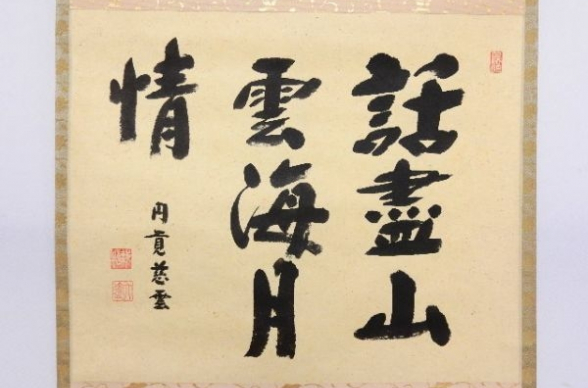 話盡山
雲海月
情
円覚慈雲